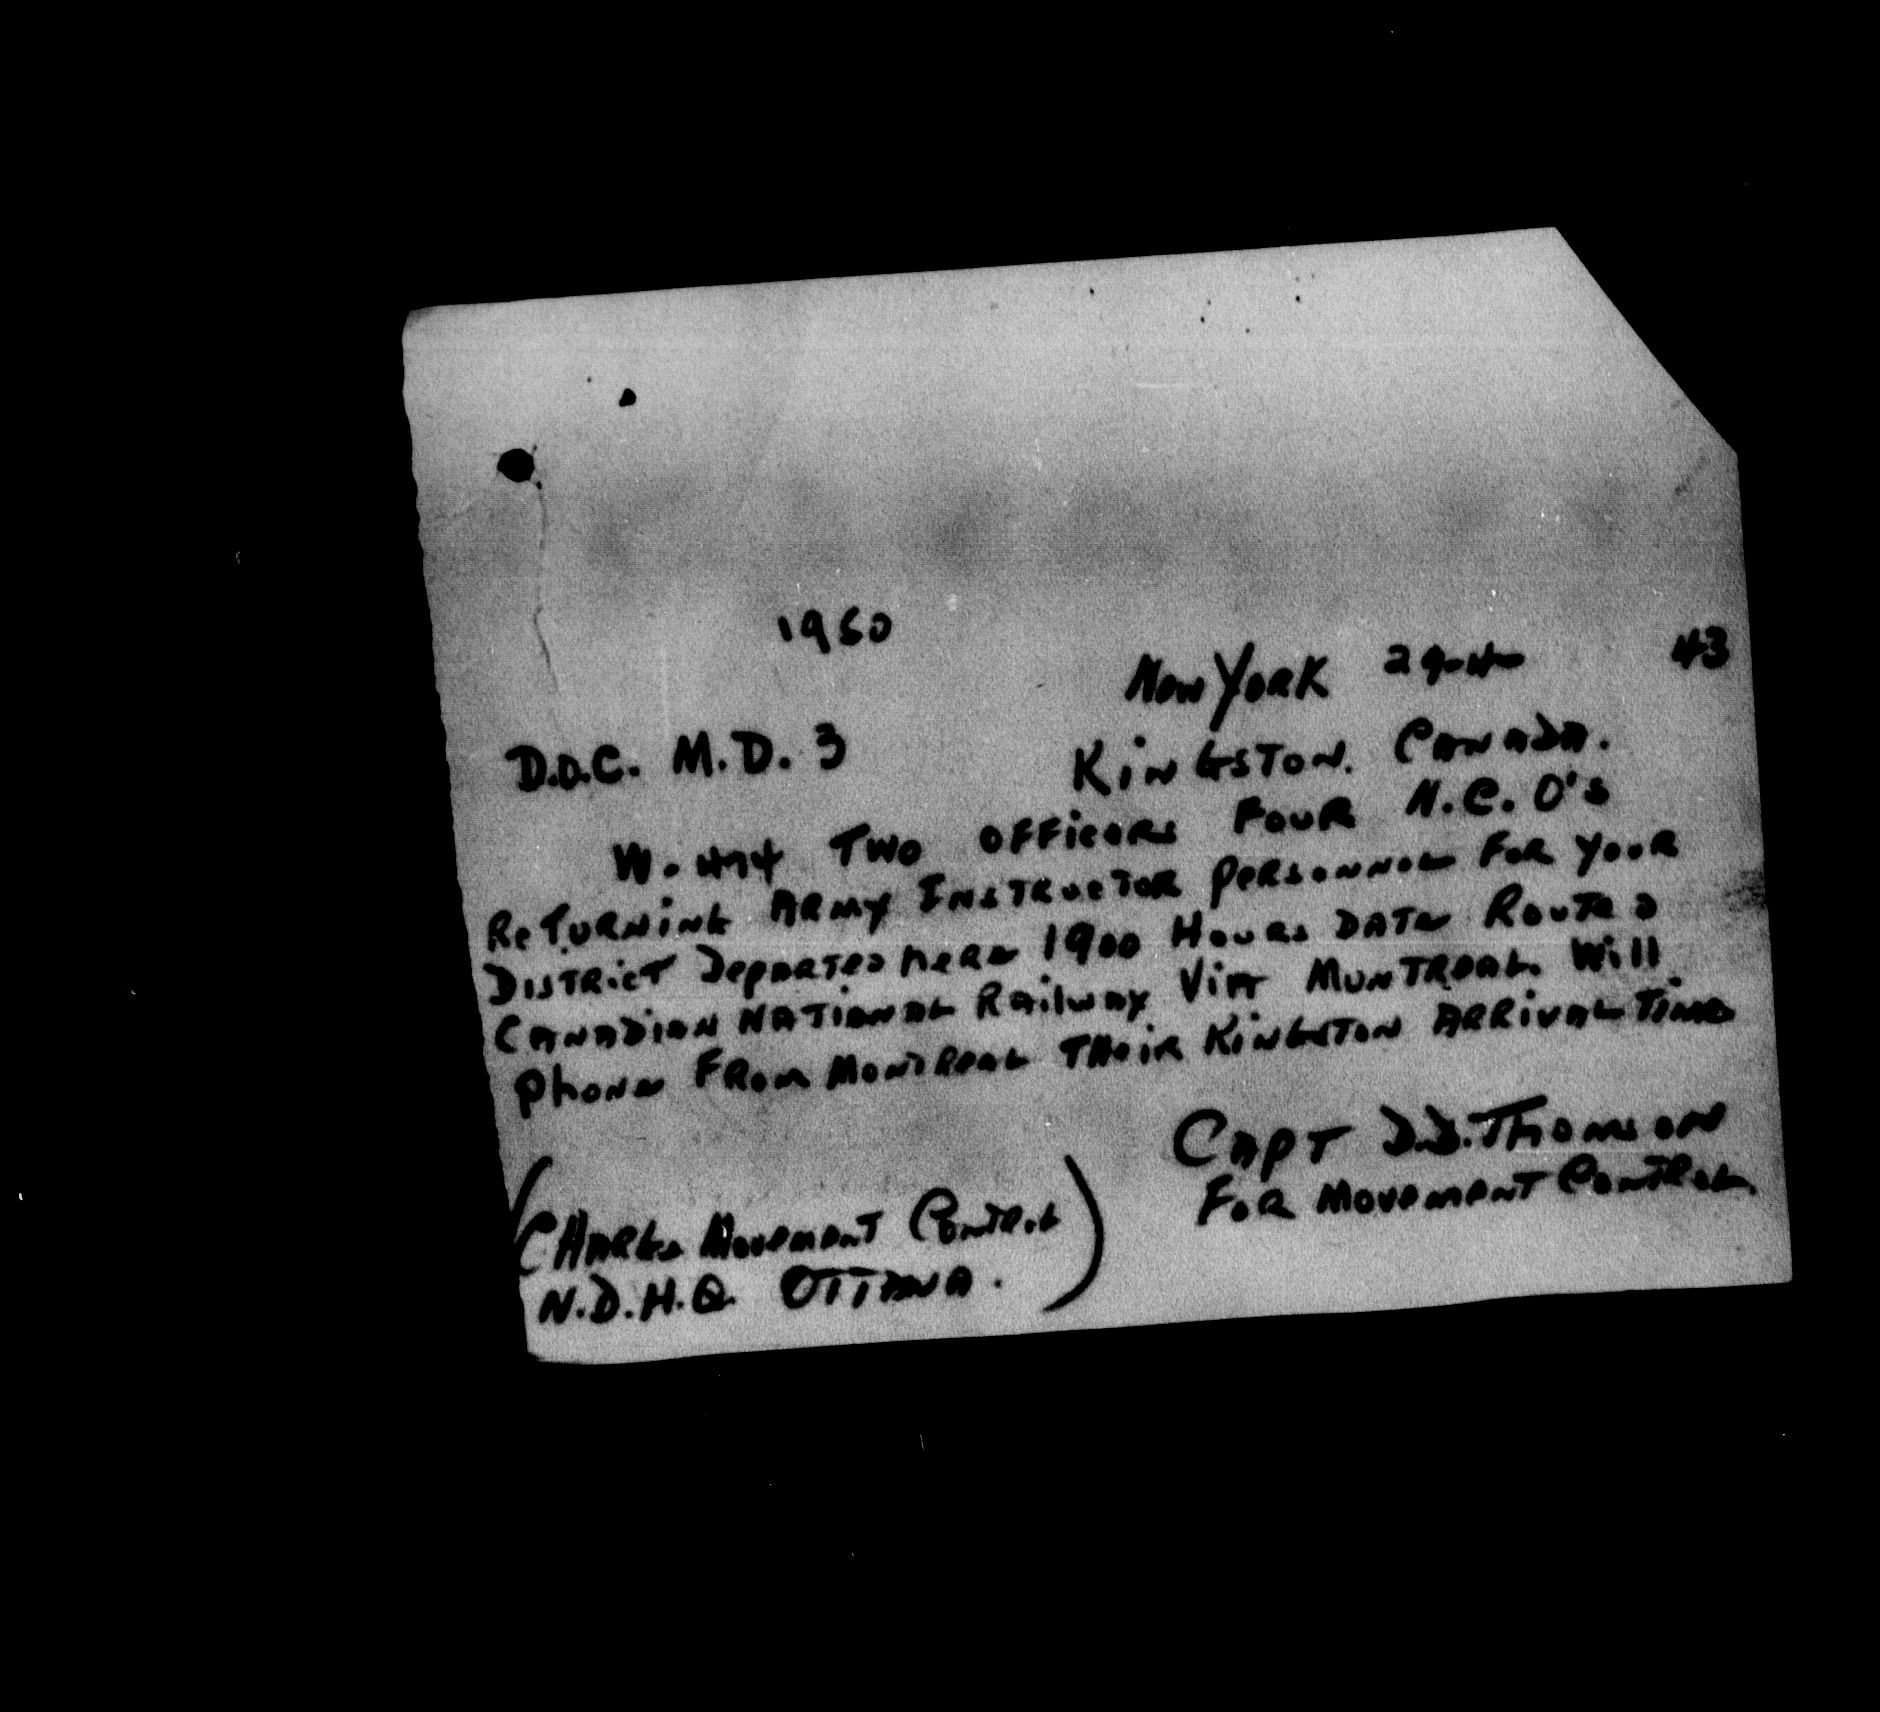 1950
New York 29-4- 43
D.O.C. M.D. 3 Kingston. Canada.
W. 474 Two Officers Four N.C.O's
Returning Army Instructor personnel For Your
District Departed here 1900 Hours Date Routed
Canadian National Railway Via Muntreal. Will
phone From Montreal Their Kingston Arrival Time
Capt D.D. Thomson
For Movement Control.
(Charge Movement Control
N.D.H.Q. Ottawa.)